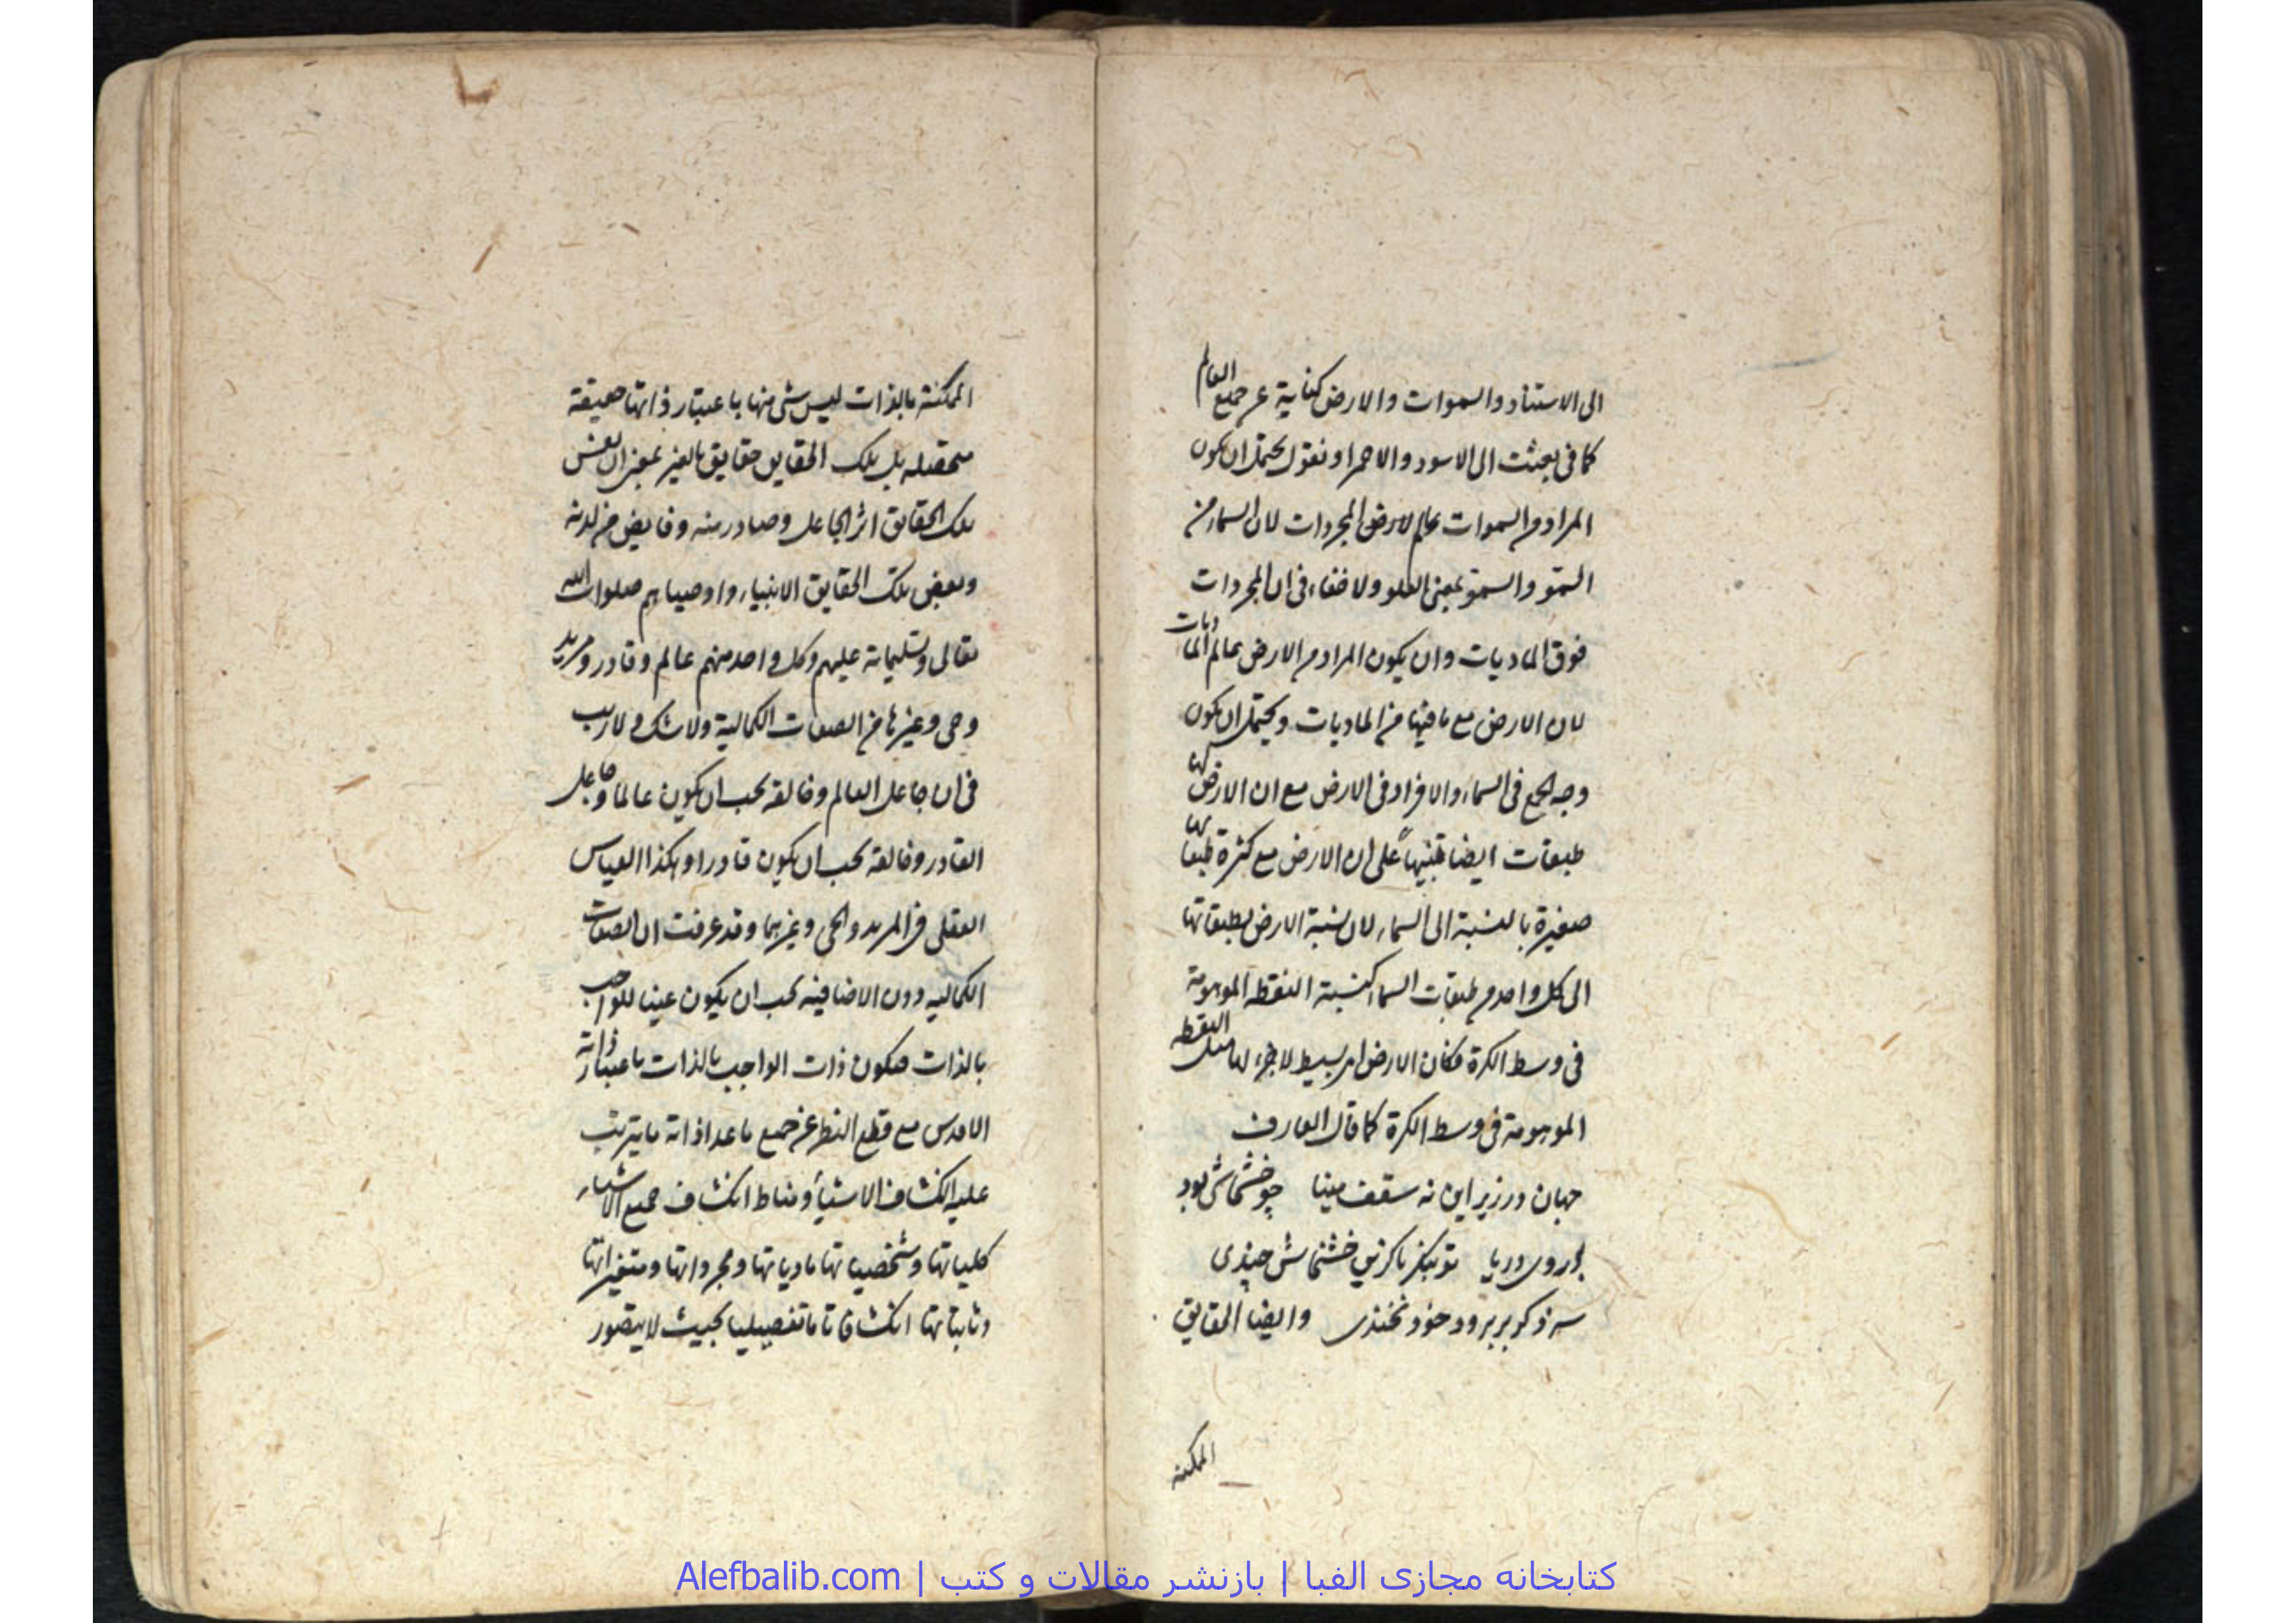 الی الاستناد والسموات والارض کنایة عن جمیع العالم
کما فی بعثت الی الاسود والاحمر او نقول یحتمل ان یکون
المراد من السموات عالم لارض المجردات لان السماء من
السمو والسمو بمعنی العلو ولا خفاء فی ان المجردات
فوق المادیات وان یکون المراد من الارض عالم المادیات
لان الارض مع ما فیها من المادیات ویحتمل ان یکون
وجه الجمع فی السماء والافراد فی الارض مع ان الارض لها
طبقات ایضا تنبیهاً علی ان الارض مع کثرة طبقاتها
صغیرة بالنسبة الی السماء لان نسبة الارض بطبقاتها
الی کل واحد من طبقات السماء کنسبة النقطة الموهومة
فی وسط الکرة فکان الارض امر بسیط لا جزء لها مثل النقطه
الموهومة فی وسط الکرة کما قال العارف
جهان در زیر این نه سقف مینا چو خشخاشی بود
بر روی دریا تو بنگر تا کزین خشخاش چندی
سزد گر بر برود خود نخندی وایضا الحقایق
الممکنه
الممکنة بالذات لیس شی منها باعتبار ذاتها حقیقة
متحصله بل تلک الحقایق حقایق بالغیر بمعنی ان نفس
تلک الحقایق اثر الجاعل وصادر منه وفایض من لدنه
وبعض تلک الحقایق الانبیاء واوصیاءهم صلوات الله
تعالی وتسلیماته علیهم وکل واحد منهم عالم وقادر ومرید
وحی وغیرها من الصفات الکمالیة ولا شک ولا ریب
فی ان جاعل العالم وخالقه یجب ان یکون عالما وجاعل
القادر وخالقه یجب ان یکون قادرا وهکذا القیاس
العقلی فی المرید والحی وغیرهما وقد عرفت ان الصفات
الکمالیه دون الاضافیه یجب ان یکون عینا للواجب
بالذات فیکون ذات الواجب بالذات باعتبار ذاته
الاقدس مع قطع النظر عن جمیع ما عدا ذاته ما یترتب
علیه انکشاف الاشیاء ومناط انکشاف جمیع الاشیاء
کلیاتها وشخصیاتها مادیاتها ومجرداتها ومتغیراتها
وثابتاتها انکشافا تاما تفصیلیا بحیث لا یتصور
کتابخانه مجازی الفبا | بازنشر مقالات و کتب | Alefbalib.com